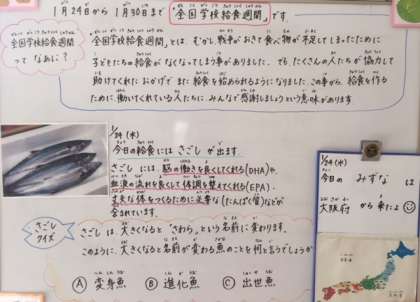 1月24日から1月30日まで "全国学校給食週間"です。
全国学校給食週間
って なあに？
"全国学校給食週間"とは、むかし戦争がおきて食べ物が不足してしまったために
子どもたちの給食がなくなってしまう事がありました。でも、たくさんの人たちが協力して
助けてくれたおかげで また給食を始められるようになりました。この事から、給食を作る
ために働いてくれている人たちに、みんなで感謝しましょうという意味があります
1/24(水)
今日の給食には さごし が出ます。
さごし には、脳の働きを良くしてくれる(DHA)や、
血液の流れを良くして体調を整えてくれる(EPA)、
丈夫な体をつくるために必要な(たんぱく質)などが
含まれています。
さごし
クイズ
さごし は、大きくなると「さわら」という名前に変わります。
このように、大きくなると名前が変わる魚のことを何と言うでしょうか
Ⓐ 変身魚 Ⓑ 進化魚 Ⓒ 出世魚
1/24(水)
今日の みずな は
大阪府 から来たよ